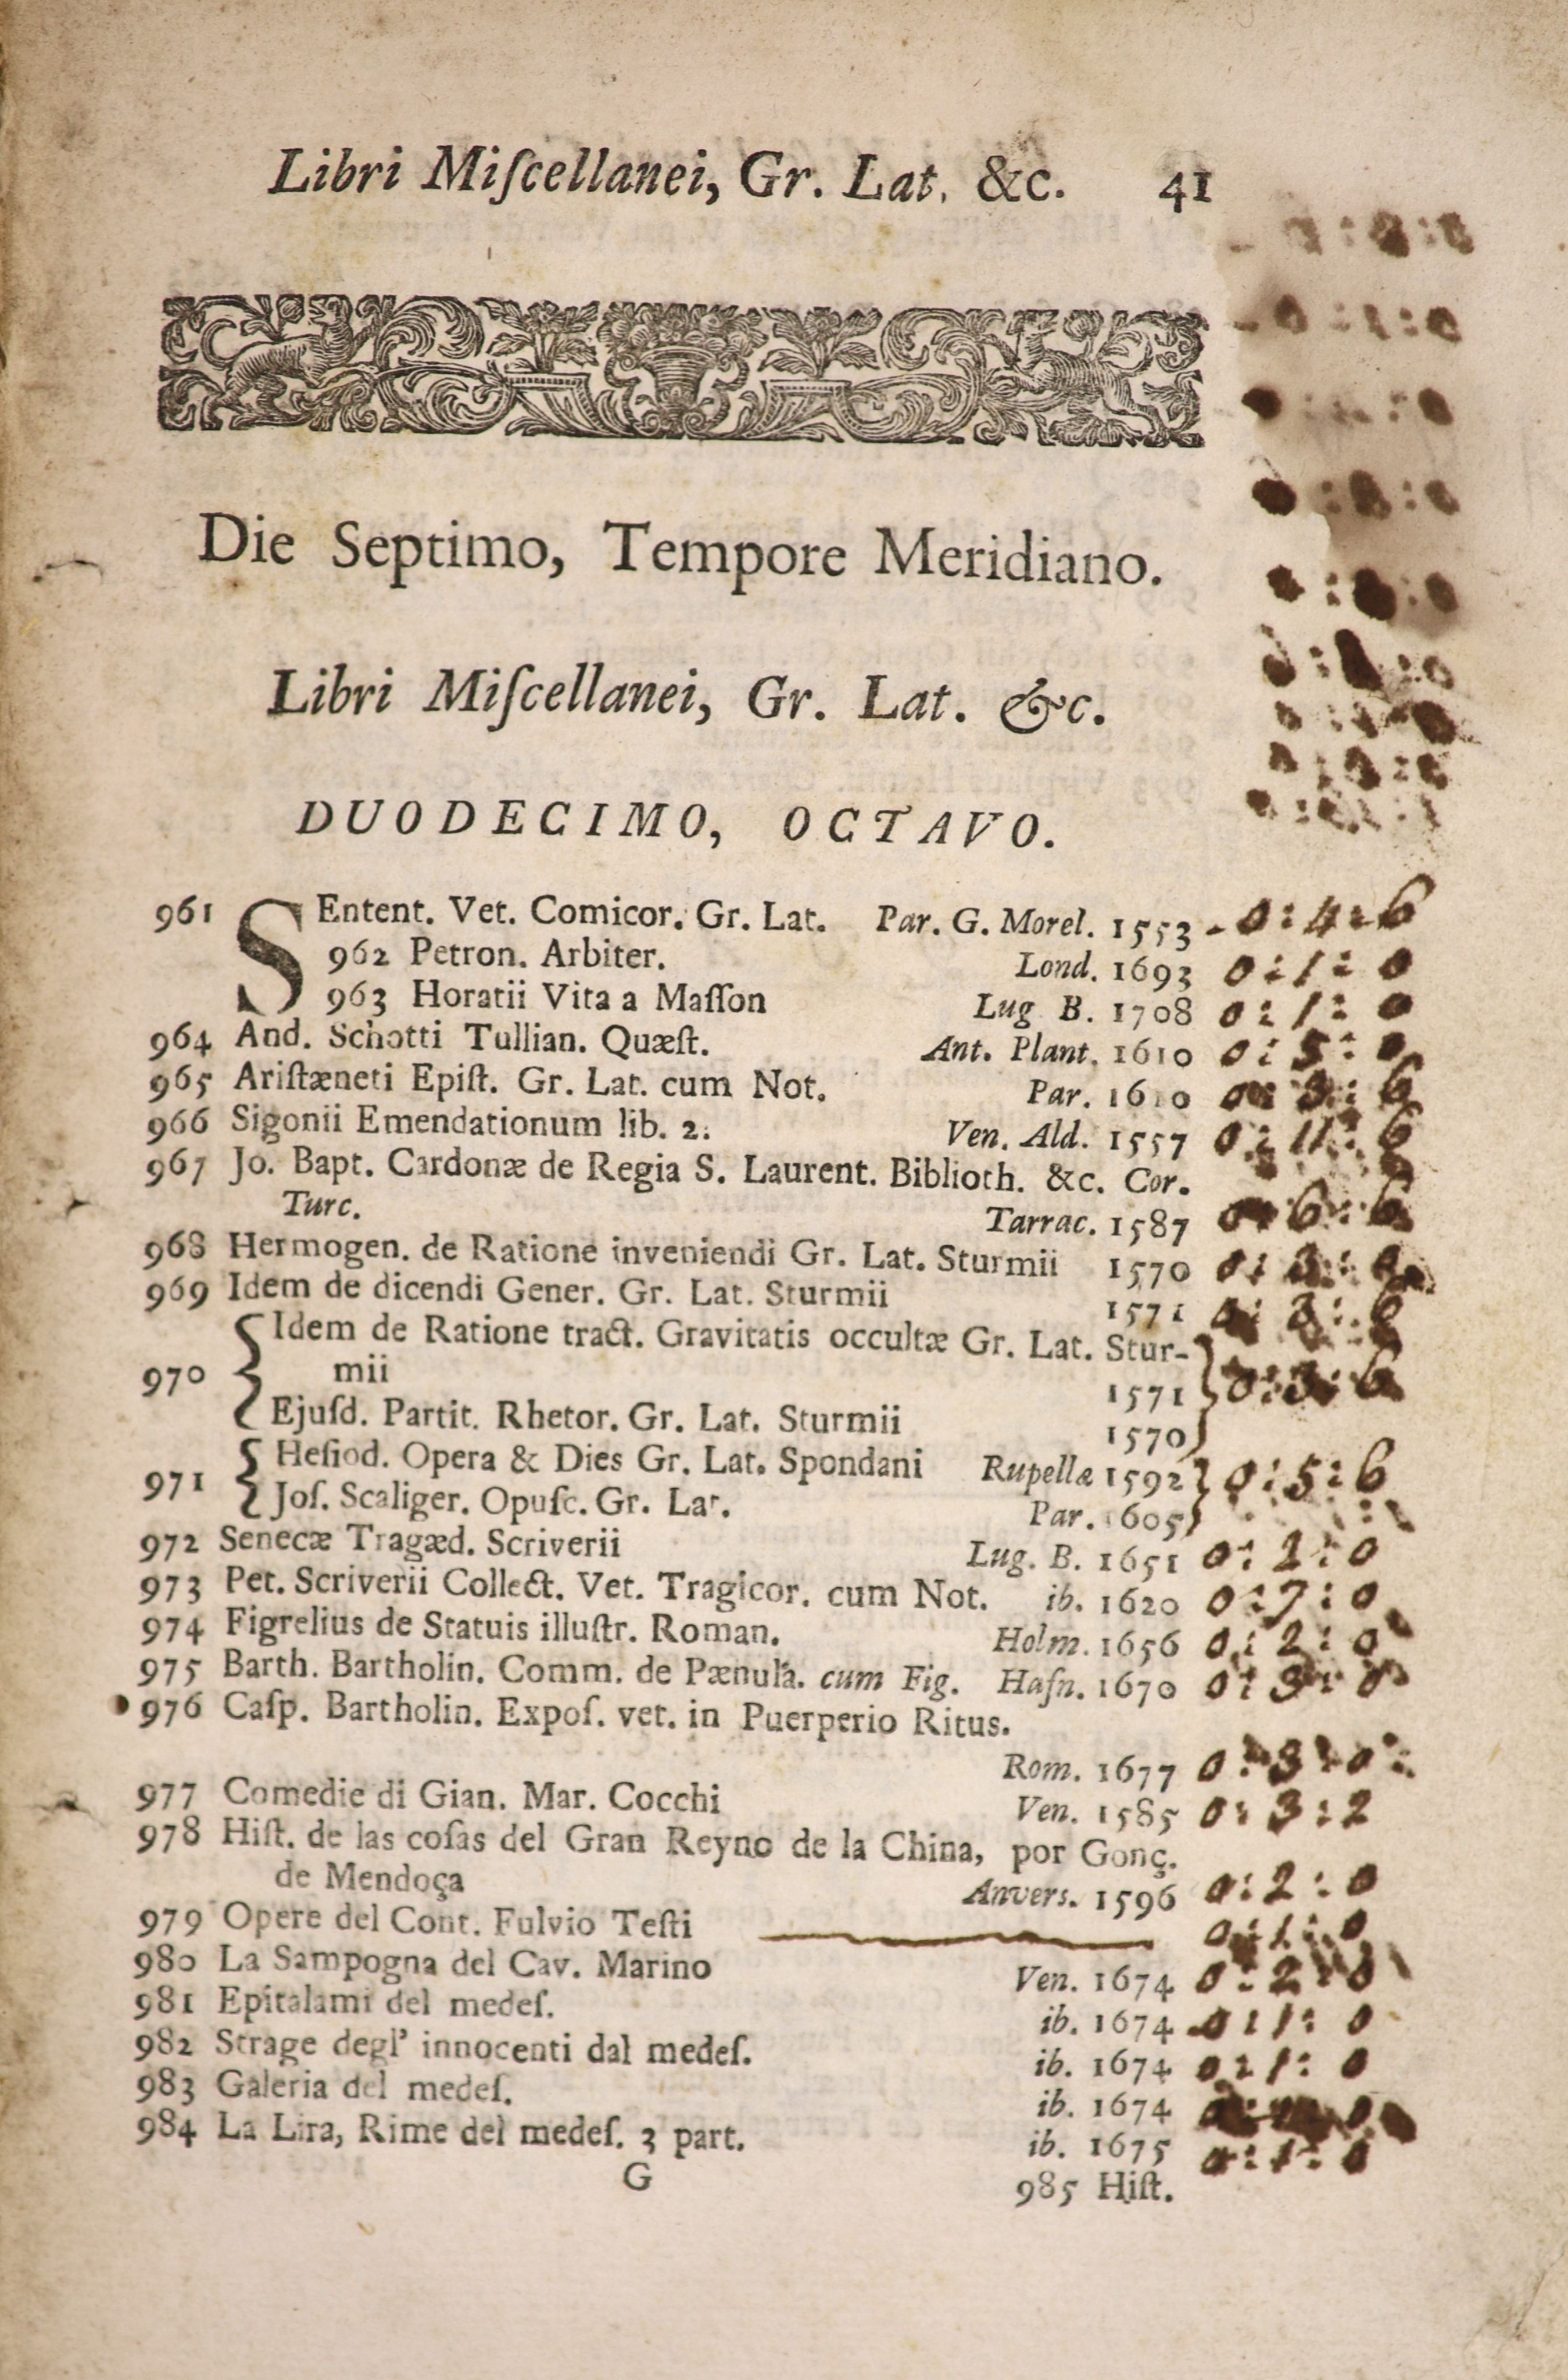 Libri Miſcellanei, Gr. Lat. &c. 41
Die Septimo, Tempore Meridiano.
Libri Miſcellanei, Gr. Lat. &c.
DUODECIMO, OCTAVO.
961 SEntent. Vet. Comicor. Gr. Lat. Par. G. Morel. 1553 - 0 : 4 : 6
962 Petron. Arbiter. Lond. 1693 0 : 1 : 0
963 Horatii Vita a Maſſon Lug B. 1708 0 : 1 : 0
964 And. Schotti Tullian. Quæſt. Ant. Plant. 1610 0 : 5 : 0
965 Ariſtæneti Epiſt. Gr. Lat. cum Not. Par. 1610 0 : 3 : 6
966 Sigonii Emendationum lib. 2. Ven. Ald. 1557 0 : 11 : 6
967 Jo. Bapt. Cardonæ de Regia S. Laurent. Biblioth. &c. Cor.
Turc. Tarrac. 1587 0 : 6 : 6
968 Hermogen. de Ratione inveniendi Gr. Lat. Sturmii 1570
969 Idem de dicendi Gener. Gr. Lat. Sturmii 1571 0 : 3 : 6
970 { Idem de Ratione tract. Gravitatis occultæ Gr. Lat. Stur-
mii 1571 } 0 : 3 : 6
Ejuſd. Partit. Rhetor. Gr. Lat. Sturmii 1570 }
971 { Heſiod. Opera & Dies Gr. Lat. Spondani Rupellæ 1592 } 0 : 5 : 6
Joſ. Scaliger. Opuſc. Gr. Lat. Par. 1605 }
972 Senecæ Tragæd. Scriverii Lug. B. 1651 0 : 2 : 0
973 Pet. Scriverii Collect. Vet. Tragicor. cum Not. ib. 1620 0 : 7 : 0
974 Figrelius de Statuis illuſtr. Roman. Holm. 1656 0 : 2 : 0
975 Barth. Bartholin. Comm. de Pænula. cum Fig. Hafn. 1670 0 : 3 : 0
976 Caſp. Bartholin. Expoſ. vet. in Puerperio Ritus.
Rom. 1677 0 : 3 : 0
977 Comedie di Gian. Mar. Cocchi Ven. 1585 0 : 3 : 2
978 Hiſt. de las coſas del Gran Reyno de la China, por Gonç.
de Mendoça Anvers. 1596 0 : 2 : 0
979 Opere del Cont. Fulvio Teſti 0 : 1 : 0
980 La Sampogna del Cav. Marino Ven. 1674 0 : 2 : 0
981 Epitalami del medeſ. ib. 1674 0 : 1 : 0
982 Strage degl' innocenti dal medeſ. ib. 1674 0 : 1 : 0
983 Galeria del medeſ. ib. 1674
984 La Lira, Rime del medeſ. 3 part. ib. 1675 0 : 1 : 0
G 985 Hiſt.